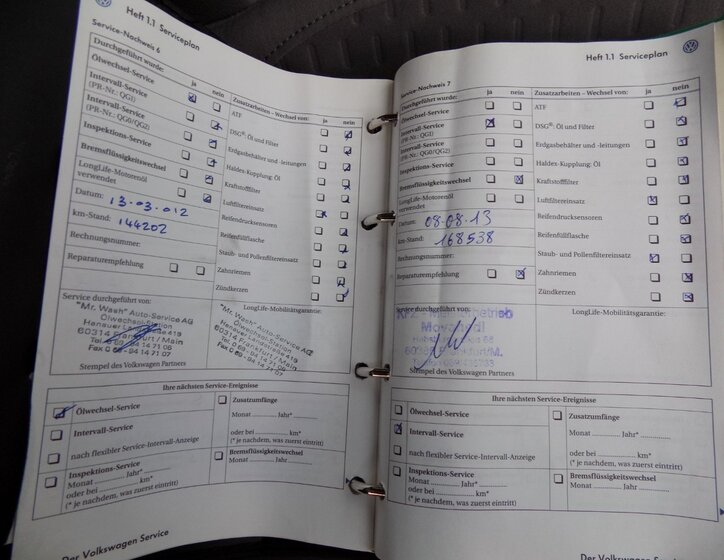 Heft 1.1 Serviceplan
Service-Nachweis 6
Durchgeführt wurde:
ja nein
Ölwechsel-Service
Intervall-Service
(PR-Nr.: QGI)
Intervall-Service
(PR-Nr.: QG0/QG2)
Inspektions-Service
Bremsflüssigkeitswechsel
LongLife-Motorenöl
verwendet
Datum: 13.03.012
km-Stand: 144202
Rechnungsnummer:
Reparaturempfehlung
Zusatzarbeiten – Wechsel von: ja nein
ATF
DSG®: Öl und Filter
Erdgasbehälter und -leitungen
Haldex-Kupplung: Öl
Kraftstofffilter
Luftfiltereinsatz
Reifendrucksensoren
Reifenfüllflasche
Staub- und Pollenfiltereinsatz
Zahnriemen
Zündkerzen
Service durchgeführt von:
"Mr. Wash" Auto-Service AG
Ölwechsel-Station
Hanauer Landstraße 419
60314 Frankfurt / Main
Tel. 069 - 94 14 71 06
Fax 069 - 94 14 71 07
Stempel des Volkswagen Partners
LongLife-Mobilitätsgarantie:
"Mr. Wash" Auto-Service AG
Ölwechsel-Station
Hanauer Landstraße 419
60314 Frankfurt / Main
Ihre nächsten Service-Ereignisse
Ölwechsel-Service
Intervall-Service
nach flexibler Service-Intervall-Anzeige
Inspektions-Service
Monat ............ Jahr*............
oder bei ............ km*
(* je nachdem, was zuerst eintritt)
Zusatzumfänge
Monat ............ Jahr*............
oder bei ............ km
(* je nachdem, was zuerst eintritt)
Bremsflüssigkeitswechsel
Monat ............ Jahr ............
Der Volkswagen Service
Heft 1.1 Serviceplan
Service-Nachweis 7
Durchgeführt wurde: ja nein
Ölwechsel-Service
Intervall-Service
(PR-Nr.: QGI)
Intervall-Service
(PR-Nr.: QG0/QG2)
Inspektions-Service
Bremsflüssigkeitswechsel
LongLife-Motorenöl
verwendet
Datum: 08.08.13
km-Stand: 168538
Rechnungsnummer:
Reparaturempfehlung
Zusatzarbeiten – Wechsel von: ja nein
ATF
DSG®: Öl und Filter
Erdgasbehälter und -leitungen
Haldex-Kupplung: Öl
Kraftstofffilter
Luftfiltereinsatz
Reifendrucksensoren
Reifenfüllflasche
Staub- und Pollenfiltereinsatz
Zahnriemen
Zündkerzen
Service durchgeführt von:
Stempel des Volkswagen Partners
LongLife-Mobilitätsgarantie:
Ihre nächsten Service-Ereignisse
Ölwechsel-Service
Intervall-Service
nach flexibler Service-Intervall-Anzeige
Inspektions-Service
Monat ............ Jahr*............
oder bei ............ km*
(* je nachdem, was zuerst eintritt)
Zusatzumfänge
Monat ............ Jahr*............
oder bei ............ km*
(* je nachdem, was zuerst eintritt)
Bremsflüssigkeitswechsel
Monat ............ Jahr ............
Der Volkswagen Service